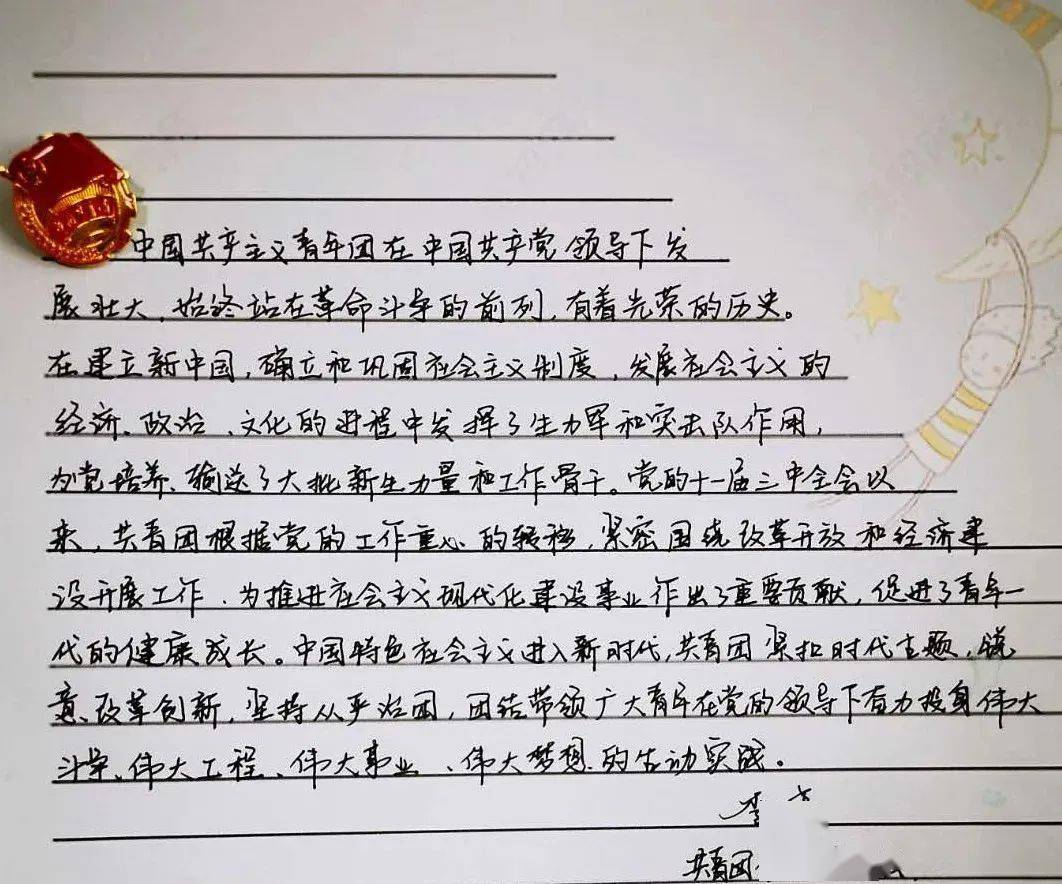 中国共产主义青年团在中国共产党领导下发
展壮大,始终站在革命斗争的前列,有着光荣的历史。
在建立新中国,确立和巩固社会主义制度,发展社会主义的
经济、政治、文化的进程中发挥了生力军和突击队作用,
为党培养、输送了大批新生力量和工作骨干。党的十一届三中全会以
来,共青团根据党的工作重心的转移,紧密围绕改革开放和经济建
设开展工作、为推进社会主义现代化建设事业作出了重要贡献,促进了青年一
代的健康成长。中国特色社会主义进入新时代,共青团紧扣时代主题,锐
意改革创新,坚持从严治团,团结带领广大青年在党的领导下奋力投身伟大
斗争、伟大工程、伟大事业、伟大梦想的生动实践。
共青团